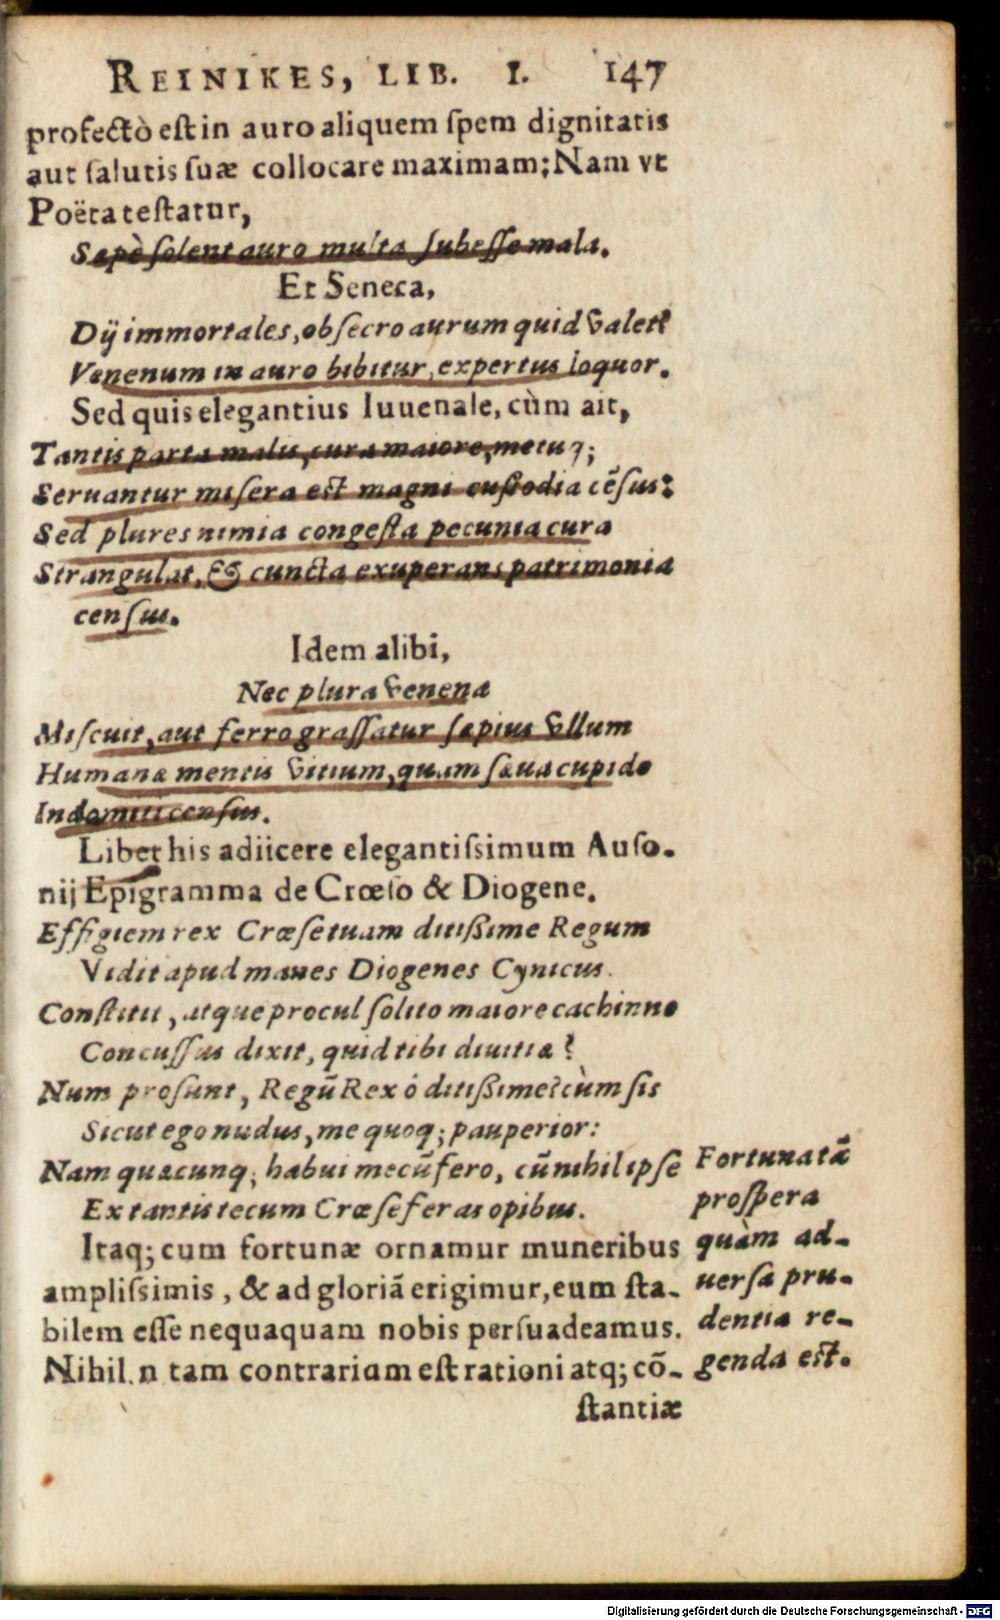 REINIKES, LIB. I. 147
profectò est in auro aliquem spem dignitatis
aut salutis suæ collocare maximam; Nam vt
Poëta testatur,
Sæpè solent auro multa subesse mala.
Et Seneca,
Dij immortales, obsecro aurum quid valet?
Venenum in auro bibitur, expertus loquor.
Sed quis elegantius Iuuenale, cùm ait,
Tantis parta malis, cura maiore, metuq;
Seruantur misera est magni custodia cēsus:
Sed plures nimia congesta pecunia cura
Strangulat, & cuncta exuperans patrimonia
census.
Idem alibi,
Nec plura venena
Miscuit, aut ferro grassatur sæpius vllum
Humanæ mentis vitium, quam sæua cupido
Indomiti census.
Libet his adiicere elegantissimum Auso-
nij Epigramma de Crœso & Diogene.
Effigiem rex Crœse tuam ditißime Regum
Vidit apud manes Diogenes Cynicus.
Constitit, atque procul solito maiore cachinno
Concussus dixit, quid tibi diuitiæ?
Num prosunt, Regū Rex ô ditißime? cùm sis
Sicut ego nudus, me quoq; pauperior:
Nam quæcunq; habui mecū fero, cū nihil ipse
Ex tantis tecum Crœse feras opibus.
Itaq; cum fortunæ ornamur muneribus
amplissimis, & ad gloriā erigimur, eum sta-
bilem esse nequaquam nobis persuadeamus.
Nihil n tam contrarium est rationi atq; cō-
stantiæ
Fortunatā
prospera
quàm ad-
uersa pru-
dentia re-
genda est.
Digitalisierung gefördert durch die Deutsche Forschungsgemeinschaft - DFG